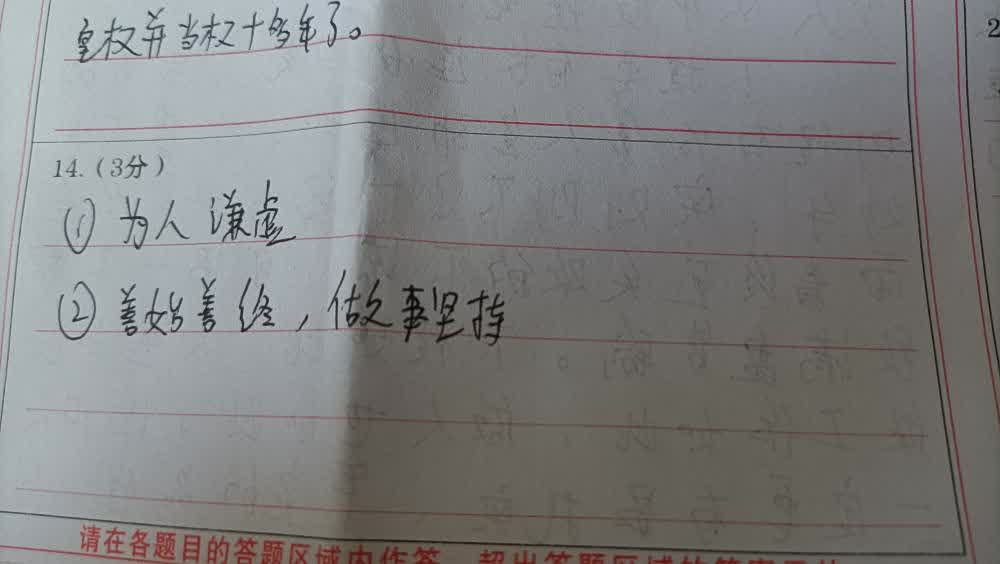 皇权并当权十多年了。
14.（3分）
① 为人谦虚
② 善始善终，做事坚持
请在各题目的答题区域内作答，超出答题区域的答案无效
2